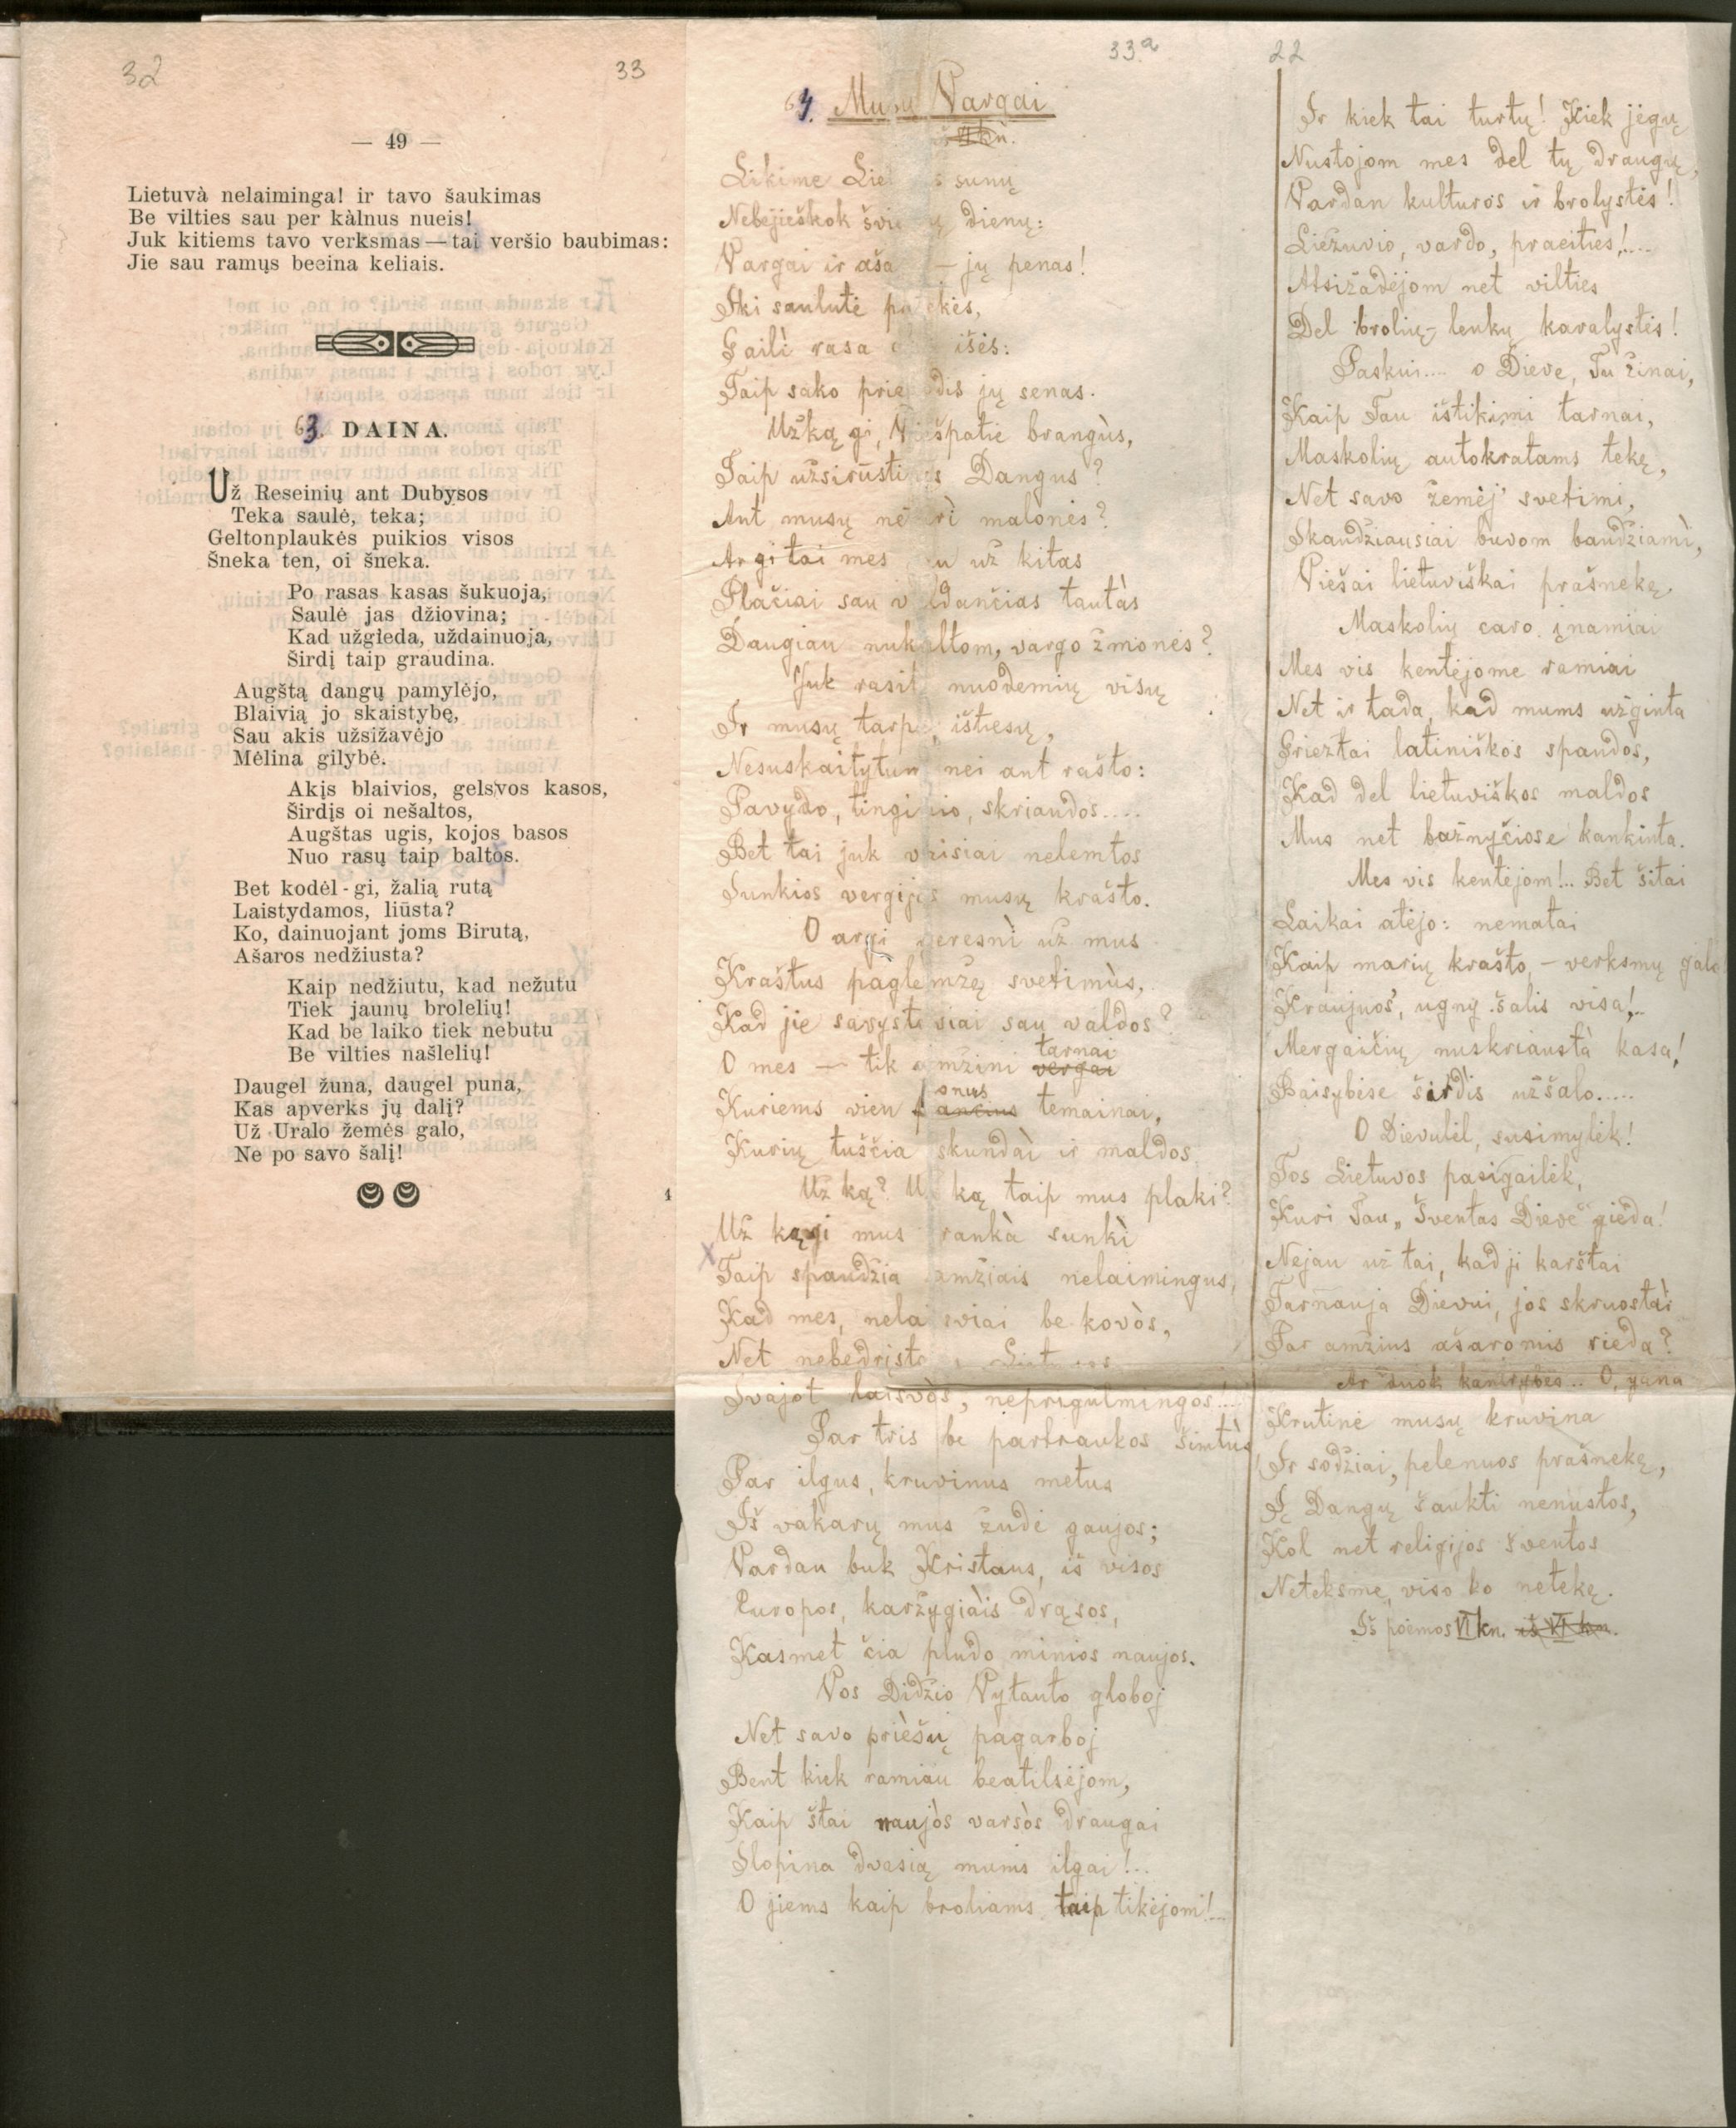 32
33
— 49 —
Lietuvà nelaiminga! ir tavo šaukimas
Be vilties sau per kàlnus nueis!
Juk kitiems tavo verksmas — tai veršio baubimas:
Jie sau ramųs beeina keliais.
63. DAINA.
Už Reseinių ant Dubysos
Teka saulė, teka;
Geltonplaukės puikios visos
Šneka ten, oi šneka.
Po rasas kasas šukuoja,
Saulė jas džiovina;
Kad užgieda, uždainuoja,
Širdį taip graudina.
Augštą dangų pamylėjo,
Blaivią jo skaistybę,
Sau akis užsižavėjo
Mėlina gilybė.
Akįs blaivios, gelsvos kasos,
Širdįs oi nešaltos,
Augštas ugis, kojos basos
Nuo rasų taip baltos.
Bet kodėl-gi, žalią rutą
Laistydamos, liūsta?
Ko, dainuojant joms Birutą,
Ašaros nedžiusta?
Kaip nedžiutu, kad nežutu
Tiek jaunų brolelių!
Kad be laiko tiek nebutu
Be vilties našlelių!
Daugel žuna, daugel puna,
Kas apverks jų dalį?
Už Uralo žemės galo,
Ne po savo šalį!
4
33a
64. Musų Vargai
Likime sunų
Nebejieškok dienų:
Vargai ir – jų penas!
Iki saulutė
Gailì rasa išės:
Taip sako jų senas.
Už ką gi, Viešpatie brangùs,
Taip užsirustinęs Dangus?
Ant musų malonės?
Argi tai mes už kitas
Plačiai sau valdančias tautàs
Daugiau nukaltom, vargo žmonės?
Juk rasit nuodemių visų
Ir musų tarpe, ištiesų,
Nesuskaitytum nei ant rašto:
Pavydo, tinginio, skriaudos....
Bet tai juk vaisiai nelemtos
Sunkios vergijos musų krašto.
O argi geresnì už mus
Kraštus paglemžę svetimùs,
Kad jie savystoviai sau valdos?
O mes — tik amžini vergai tarnai
Kuriems vien temainai,
Kurių tuščia skundaì ir maldos.
Už ką? Už ką taip mus plaki?
Už kągi mus rankà sunkì
Taip spaudžia amžiais nelaimingus,
Kad mes, nelaisviai be kovòs,
Net nebedrįsta
Svajot laisvòs, neprigulmingos!...
Par tris be partraukos šimtùs
Par ilgus, kruvinus metus
Iš vakarų mus žudė gaujos;
Vardan buk Kristaus, iš visos
Europos, karžygiàis drąsos,
Kasmet čia pludo minios naujos.
Vos Didžio Vytauto globoj
Net savo prièšų pagarboj
Bent kiek ramiau beatilsėjom,
Kaip štai naujòs varsòs draugai
Slopina dvasią mums ilgai!..
O jiems kaip broliams taip tikėjom!...
22
Ir kiek tai turtų! Kiek jėgų
Nustojom mes del tų draugų,
Vardan kulturos ir brolystės!
Liežuvio, vardo, praeities!....
Atsižadėjom net vilties
Del brolių-lenkų karalystės!
Paskui.... o Dieve, Tu žinai,
Kaip Tau ištikimi tarnai,
Maskolių autokratams tekę,
Net savo žemėj' svetimi,
Skaudžiausiai buvom baudžiamì,
Viešai lietuviškai prašnekę.
Maskolių caro įnamiai
Mes vis kentėjome ramiai
Net ir tada, kad mums užginta
Grieztai latiniškos spaudos,
Kad del lietuviškos maldos
Mus net bažnyčiose kankinta.
Mes vis kentėjom!.. Bet šitai
Laikai atėjo: nematai
Kaip marių krašto, – verksmų galo
Kraujuos', ugny šalis visa!..
Mergaičių nuskriausta kasa!
Baisybėse širdis užšalo.....
O Dievulėl, susimylėk!
Tos Lietuvos pasigailėk,
Kuri Tau „Šventas Dieve" gieda!
Nejau už tai, kad ji karštai
Tarnauja Dievui, jos skruostaì
Par amžius ašaromis rieda?
kantrybės... O, gana
Krutinė musų kruvina
Ir sodžiai, pelenuos prašnekę,
Į Dangų šaukti nenustos,
Kol net religijos šventos
Neteksme, viso ko netekę.
Iš poemos VI kn. iš VI kn.